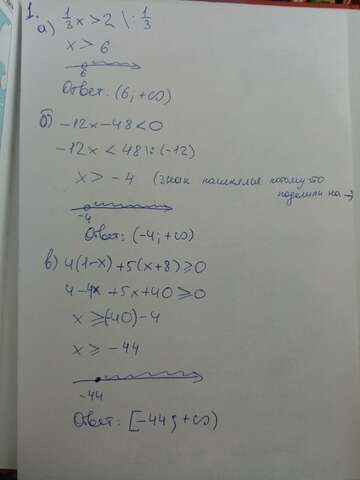 1.
а) 1/3 x > 2 \ : 1/3
x > 6
6
Ответ: (6; +∞)
б) -12x - 48 < 0
-12x < 48 |: (-12)
x > -4 (знак поменялся потому-что
поделили на →)
-4
Ответ: (-4; +∞)
в) 4(1-x) + 5(x+8) ⩾ 0
4 - 4x + 5x + 40 ⩾ 0
x ⩾ (-40) - 4
x ⩾ -44
-44
Ответ: [-44; +∞)